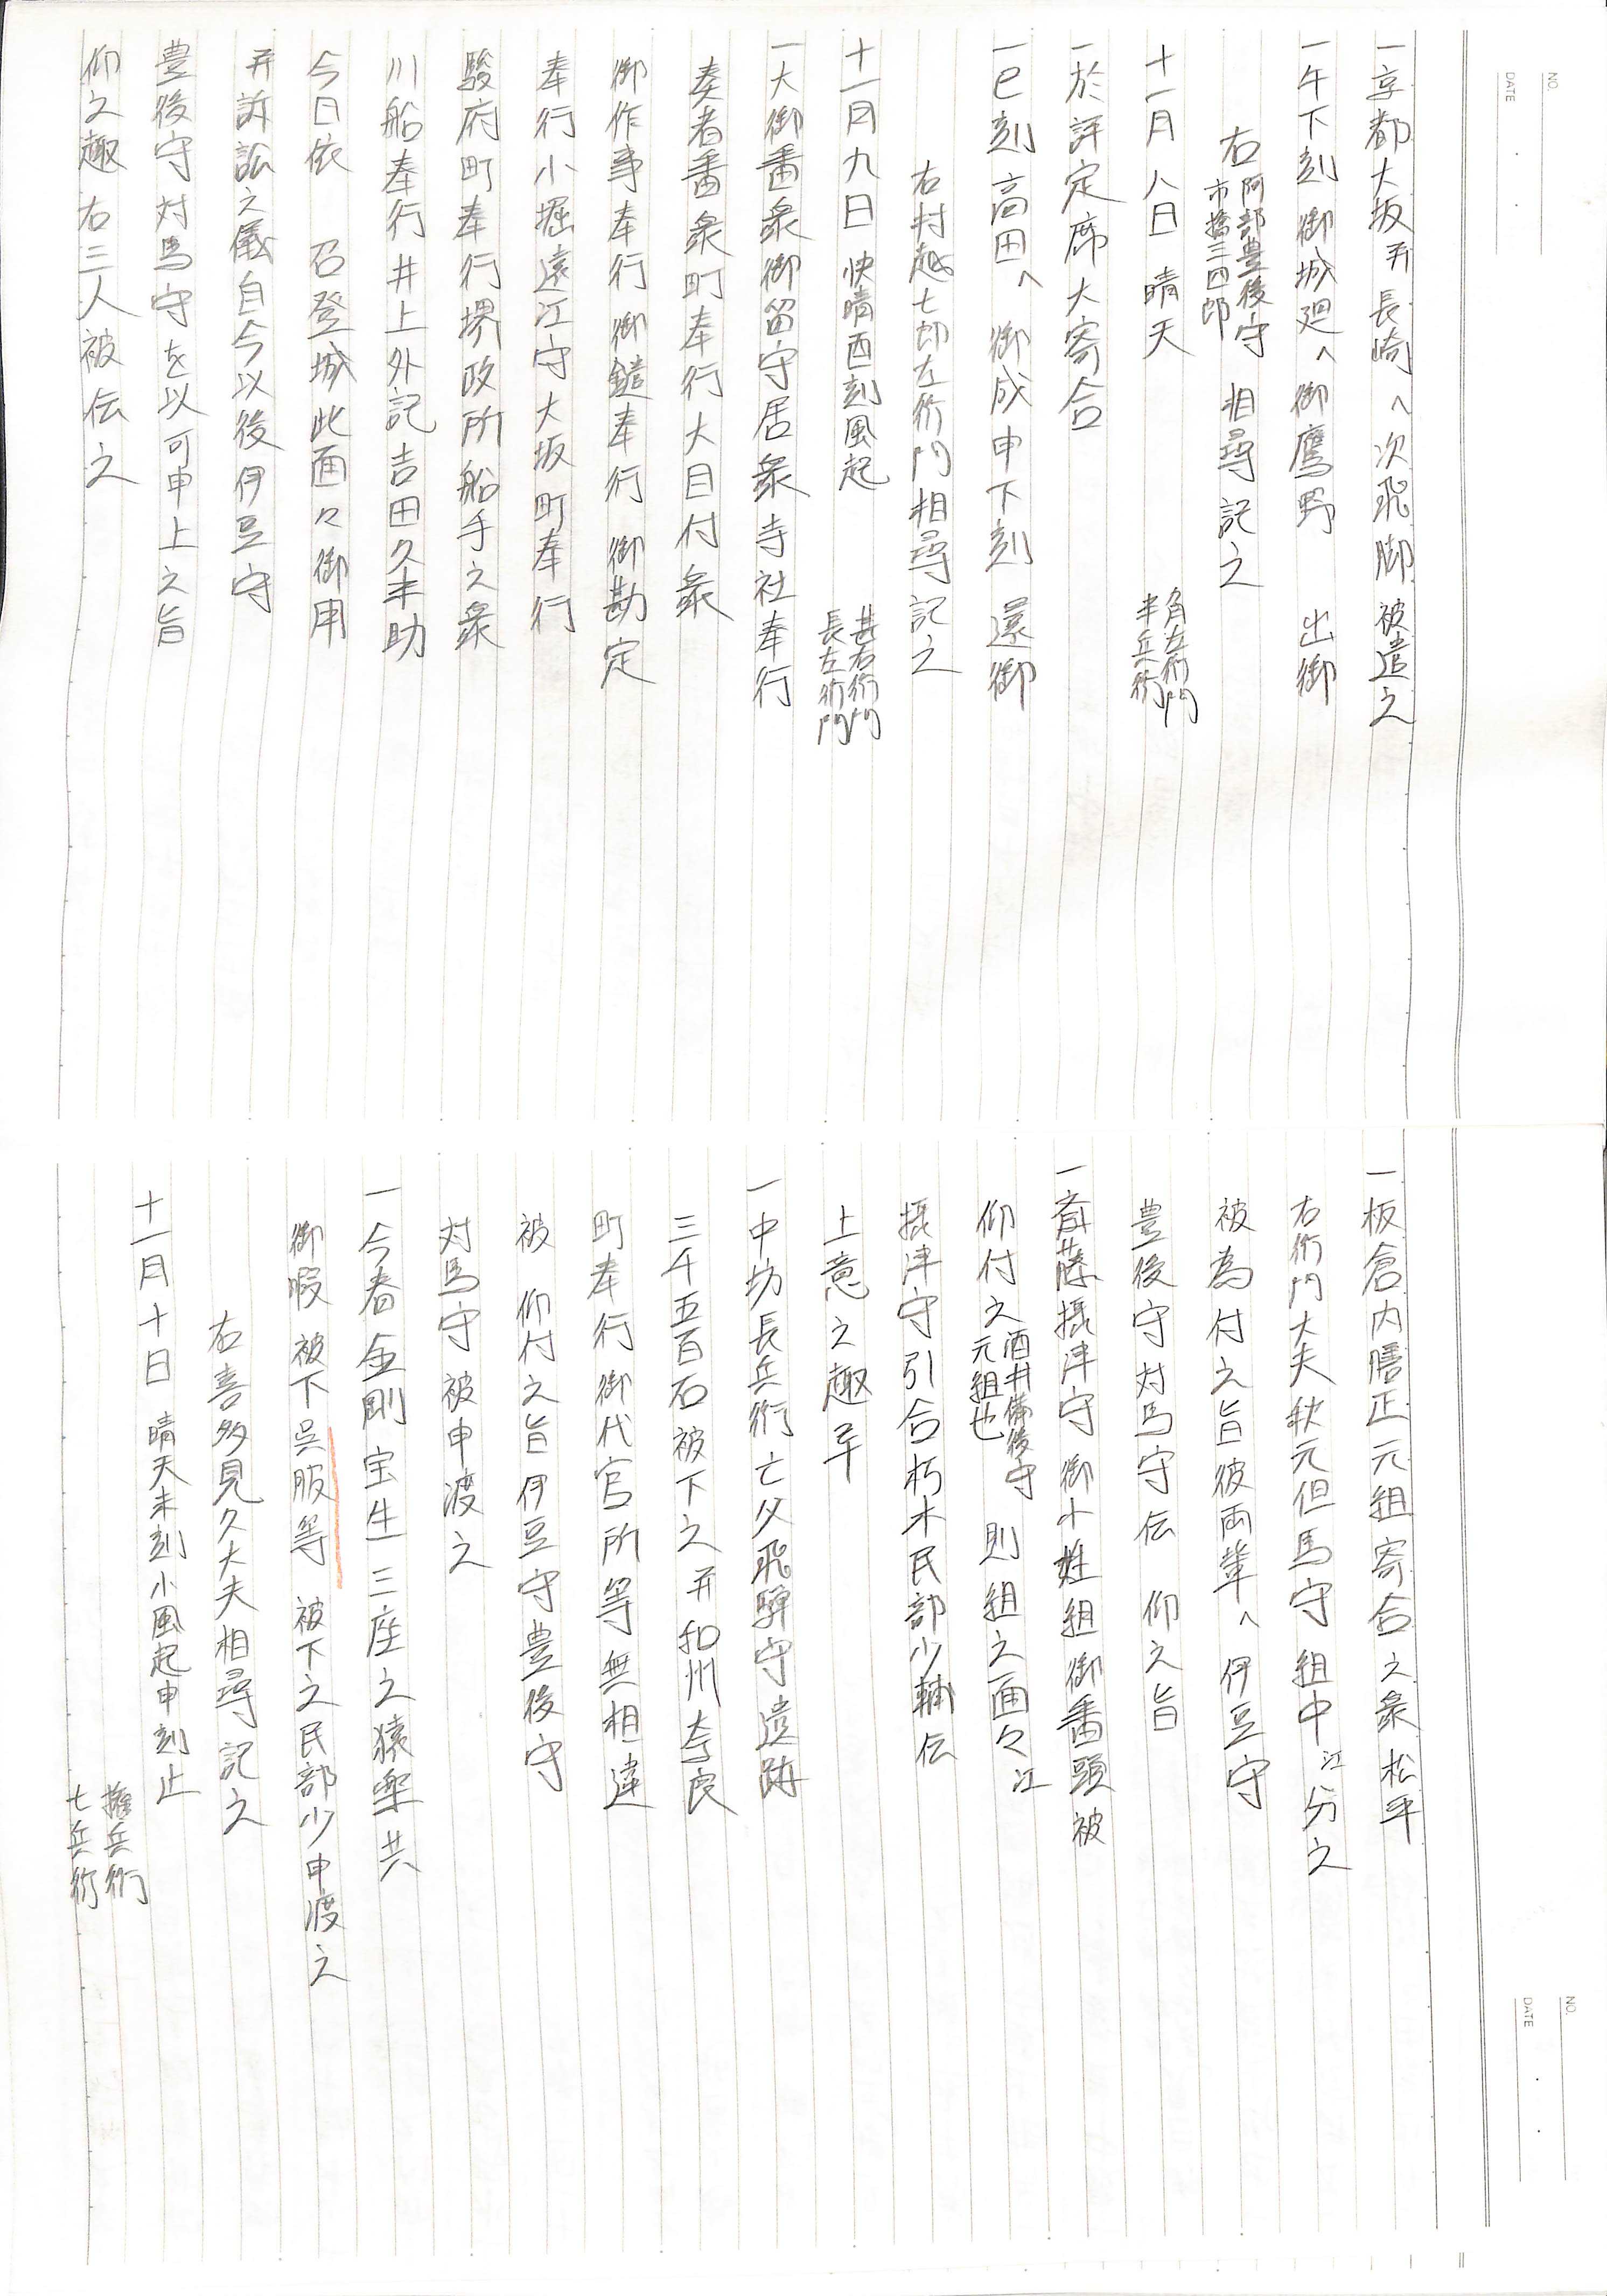 一京都大坂并長崎へ次飛脚被遣之
一午下刻御城廻へ御鷹野 出御
右 阿部豊後守 市橋三四郎 相尋記之
十一月八日 晴天 角左衛門 半兵衛
一於評定席大寄合
一巳刻高田へ 御成申下刻 還御
右村越七郎左衛門相尋記之
十一月九日 快晴酉刻風起 甚右衛門 長左衛門
一大御番衆御留守居衆寺社奉行
奏者番衆町奉行大目付衆
御作事奉行御鑓奉行御勘定
奉行小堀遠江守大坂町奉行
駿府町奉行堺政所船手之衆
川船奉行井上外記吉田久米助
今日依 召登城此面々御用
并訴訟之儀自今以後伊豆守
豊後守対馬守を以可申上之旨
仰之趣右三人被伝之
NO.
DATE
一板倉内膳正元組寄合之衆松平
右衛門大夫秋元但馬守組中江分之
被為付之旨彼両輩へ伊豆守
豊後守対馬守伝 仰之旨
一斉藤摂津守御小姓組御番頭被
仰付之 酒井備後守 元組也 則組之面々江
摂津守引合朽木民部少輔伝
上意之趣畢
一中坊長兵衛亡父飛騨守遺跡
三千五百石被下之并和州奈良
町奉行御代官所等無相違
被 仰付之旨伊豆守豊後守
対馬守被申渡之
一今春金剛宝生三座之猿楽共
御暇被下呉服等 被下之民部少申渡之
右喜多見久大夫相尋記之
十一月十日 晴天未刻小風起申刻止
権兵衛 七兵衛
NO.
DATE